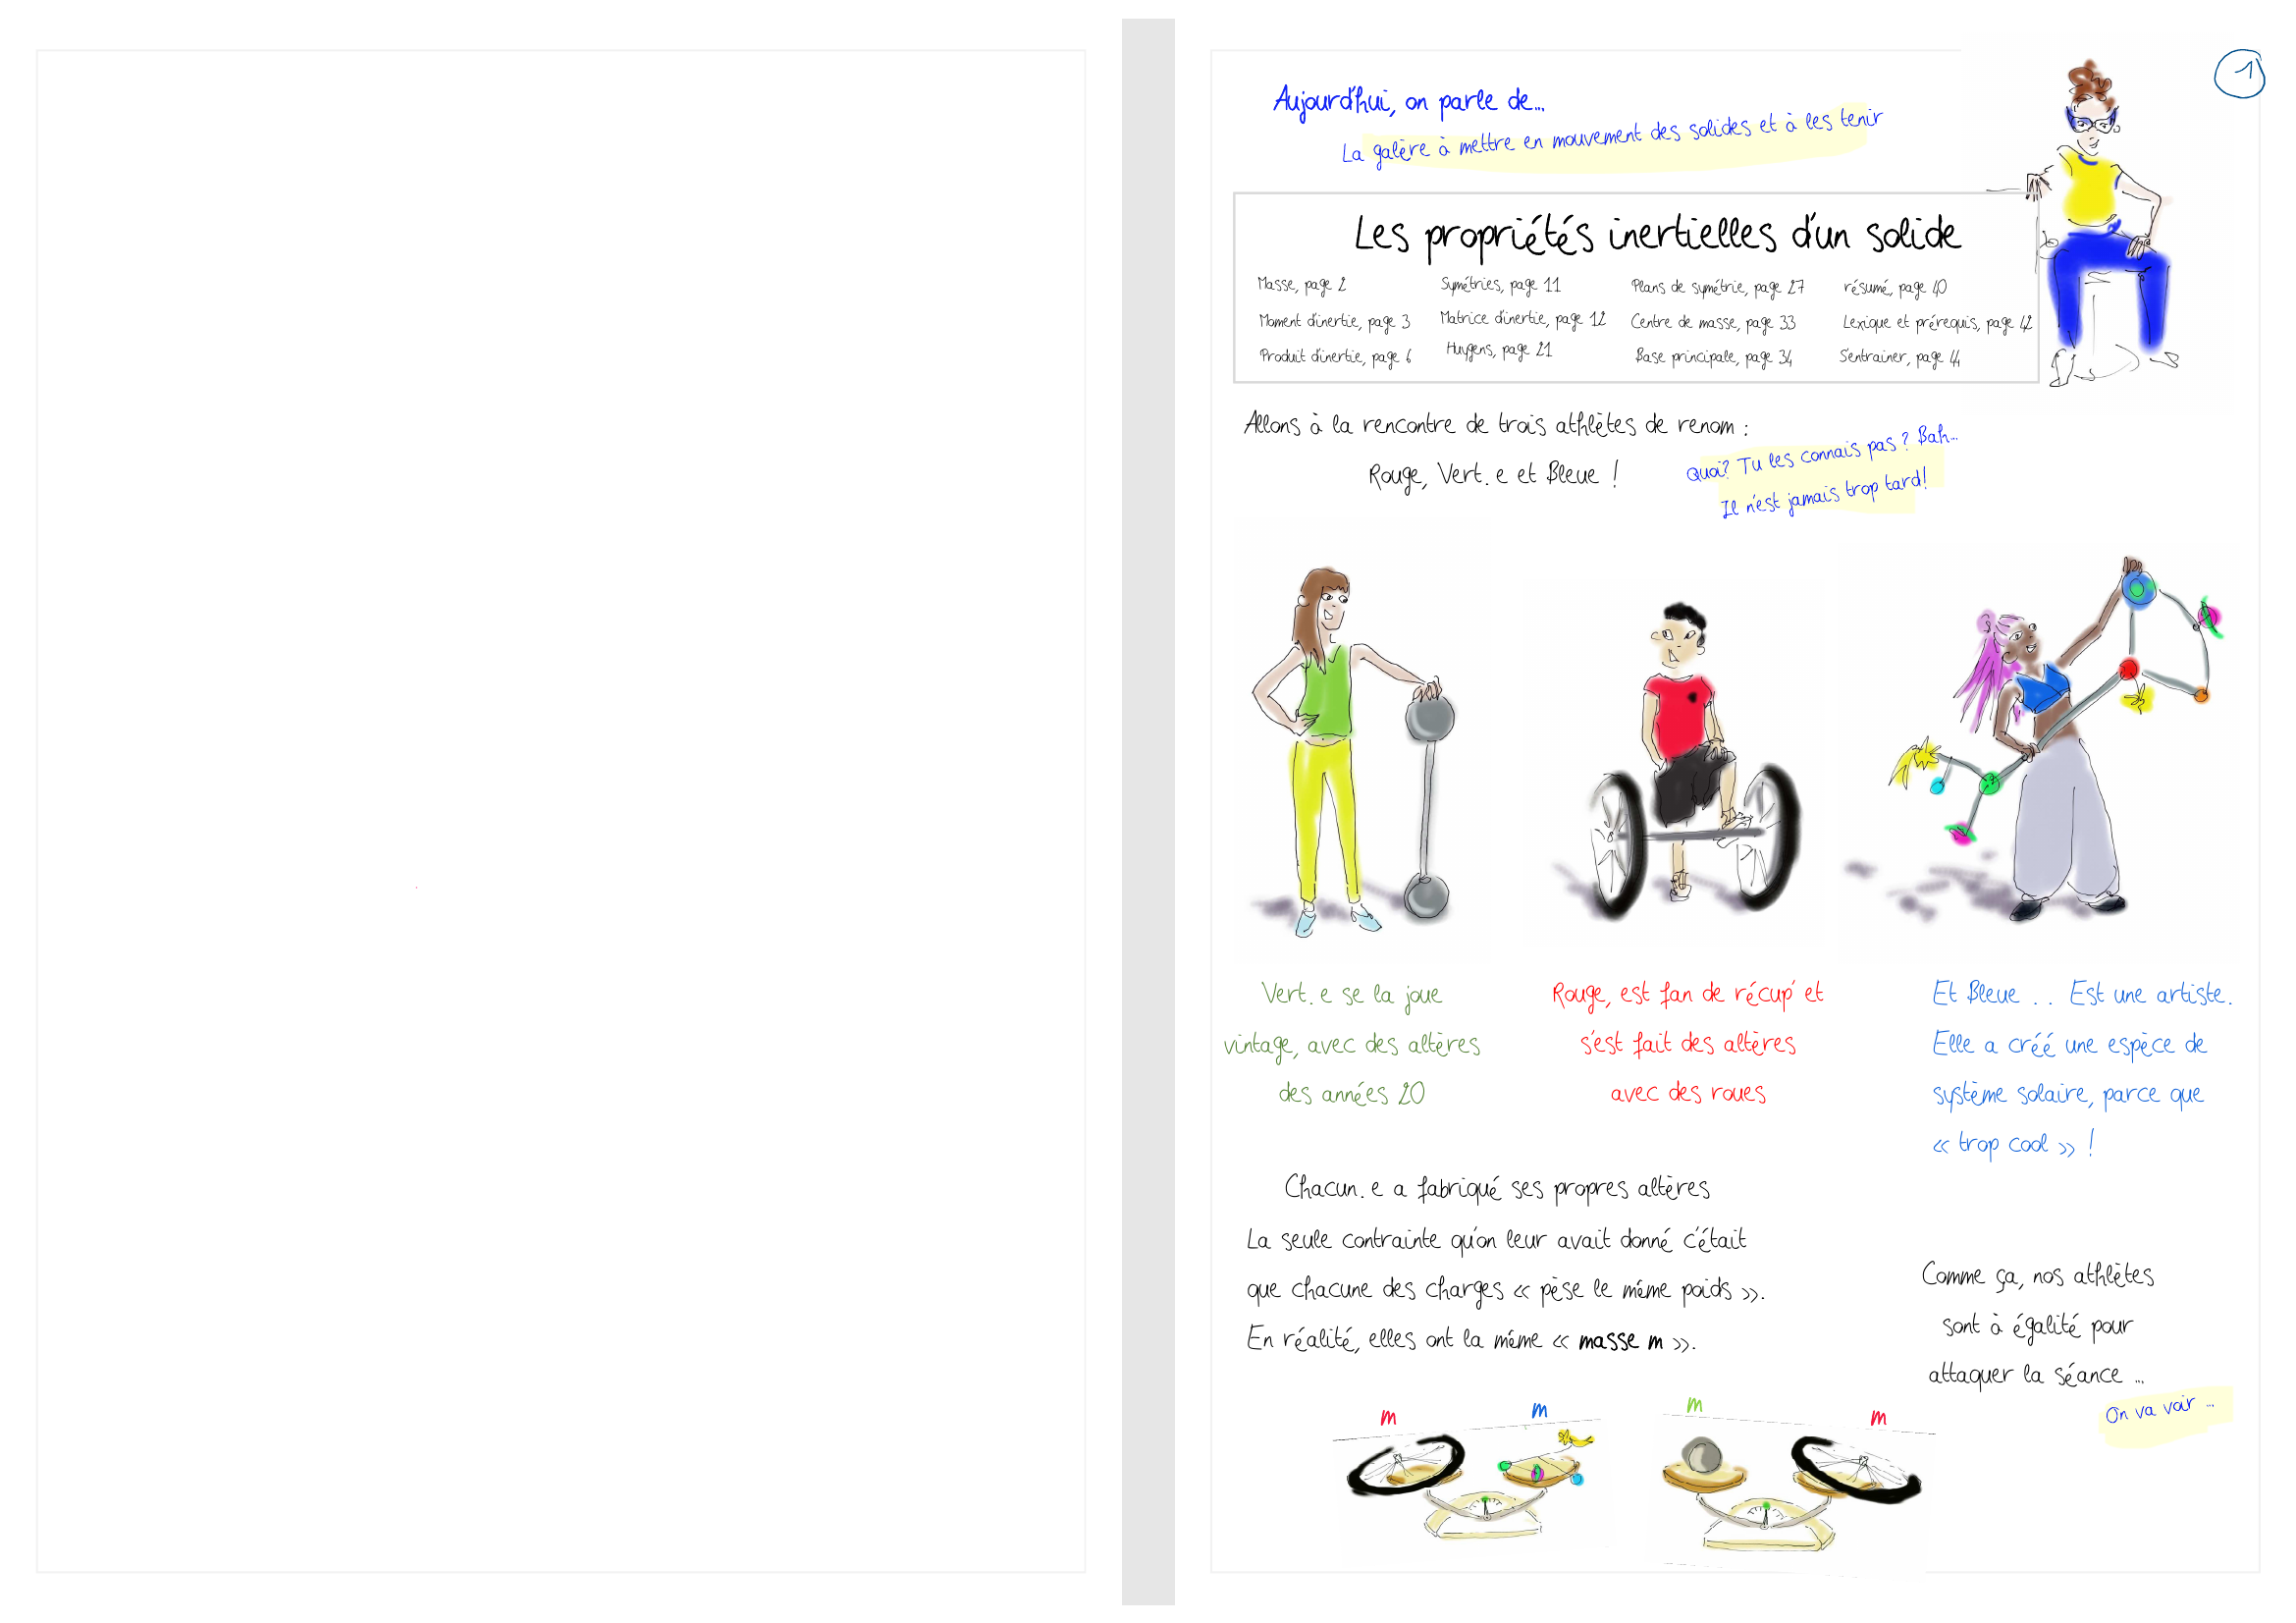 1
Aujourd'hui, on parle de...
La galère à mettre en mouvement des solides et à les tenir
Les propriétés inertielles d'un solide
Masse, page 2
Moment d'inertie, page 3
Produit d'inertie, page 6
Symétries, page 11
Matrice d'inertie, page 12
Huygens, page 21
Plans de symétrie, page 27
Centre de masse, page 33
Base principale, page 34
résumé, page 40
Lexique et prérequis, page 42
S'entrainer, page 44
Allons à la rencontre de trois athlètes de renom :
Rouge, Vert. e et Bleue !
Quoi? Tu les connais pas ? Bah...
Il n'est jamais trop tard!
Vert. e se la joue
vintage, avec des altères
des années 20
Rouge, est fan de récup' et
s'est fait des altères
avec des roues
Et Bleue . . Est une artiste.
Elle a créé une espèce de
système solaire, parce que
« trop cool » !
Chacun. e a fabriqué ses propres altères
La seule contrainte qu'on leur avait donné c'était
que chacune des charges « pèse le même poids ».
En réalité, elles ont la même « masse m ».
Comme ça, nos athlètes
sont à égalité pour
attaquer la séance ...
On va voir ...
m
m
m
m